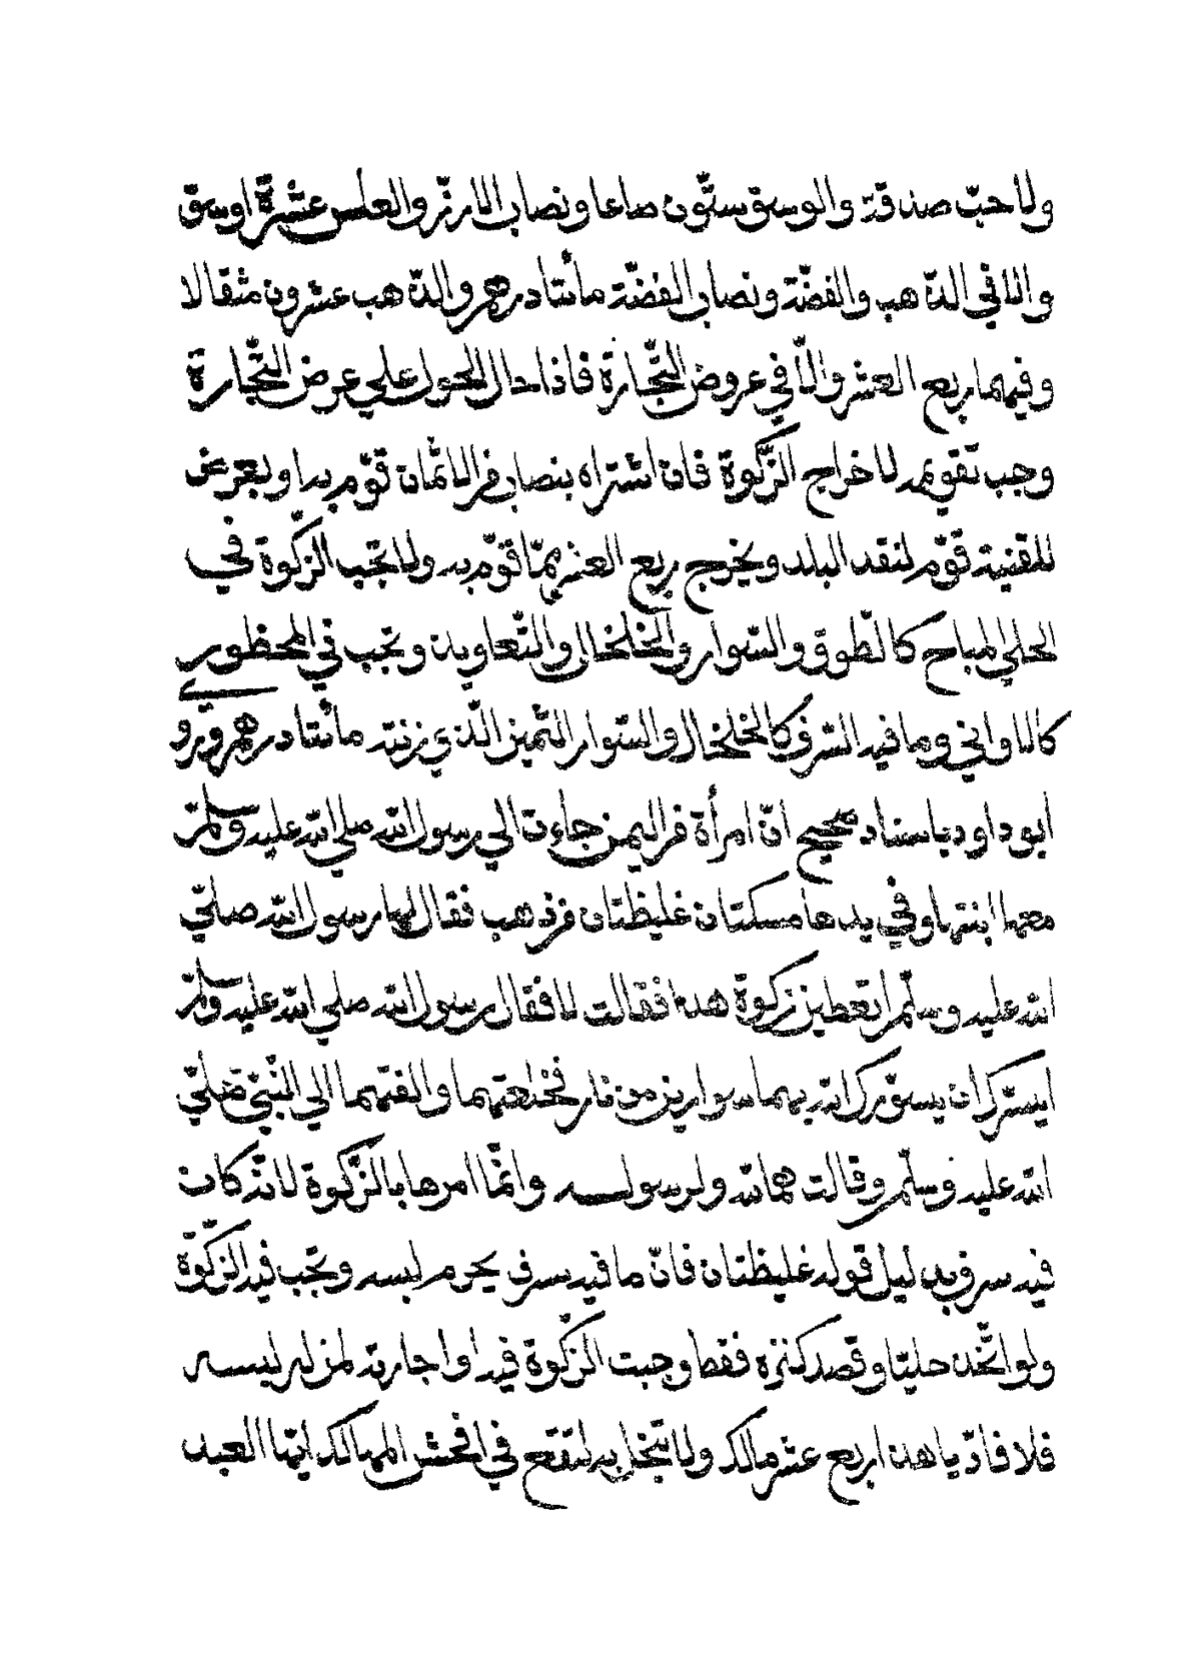 ولا حبّ صدقة والوسق ستّون صاعا ونصاب الارزّ والعلس عشرة اوسق
والّا في الذّهب والفضّة ونصاب الفضّة مأتتا درهم والذّهب عشرون مثقالا
وفيهما ربع العشر والّا في عروض التّجارة فاذا حال الحول علي عرض التّجارة
وجب تقويمه لاخراج الزّكوة فان اشتراه بنصاب من الاثمان قوّم به او بعرض
للقنية قوّم لنقد البلد ويخرج ربع العشر ممّا قوّم به ولا تجب الزكوة في
الحلي المباح كالطّوق والسّوار والخلخال والتّعاويذ وتجب في المحظور
كالاواني وما فيه السّرف كالخلخال والسّوار الثّمين الّذي زنته مأئتا درهم وروي
ابو داود باسناد صحيح انّ امرأة من اليمن جاءت الي رسول الله صلي الله عليه وسلم
معها ابنتها وفي يدها مسكتان غليظتان من ذهب فقال لها رسول الله صلّي
الله عليه وسلّم اتعطين زكوة هذا فقالت لا فقال رسول الله صلي الله عليه وسلم
ايسرّك ان يسوّرك الله بهما سوارين من نار فخلعتهما والقتهما الي النّبيّ صلّي
الله عليه وسلّم وقالت هما لله ولرسوله وانّما امرها بالزّكوة لانّه كان
فيه سرف بدليل قوله غليظتان فانّ ما فيه سرف يحرم لبسه وتجب فيه الزّكوة
ولو اتّخذ حليّا وقصد كنزه فقط وجبت الزّكوة فيه او اجارته لمن له لبسه
فلا فادّ يا هذا ربع عشر مالك ولا تبخل به لتقع في افحش المهالك ايّها العبد